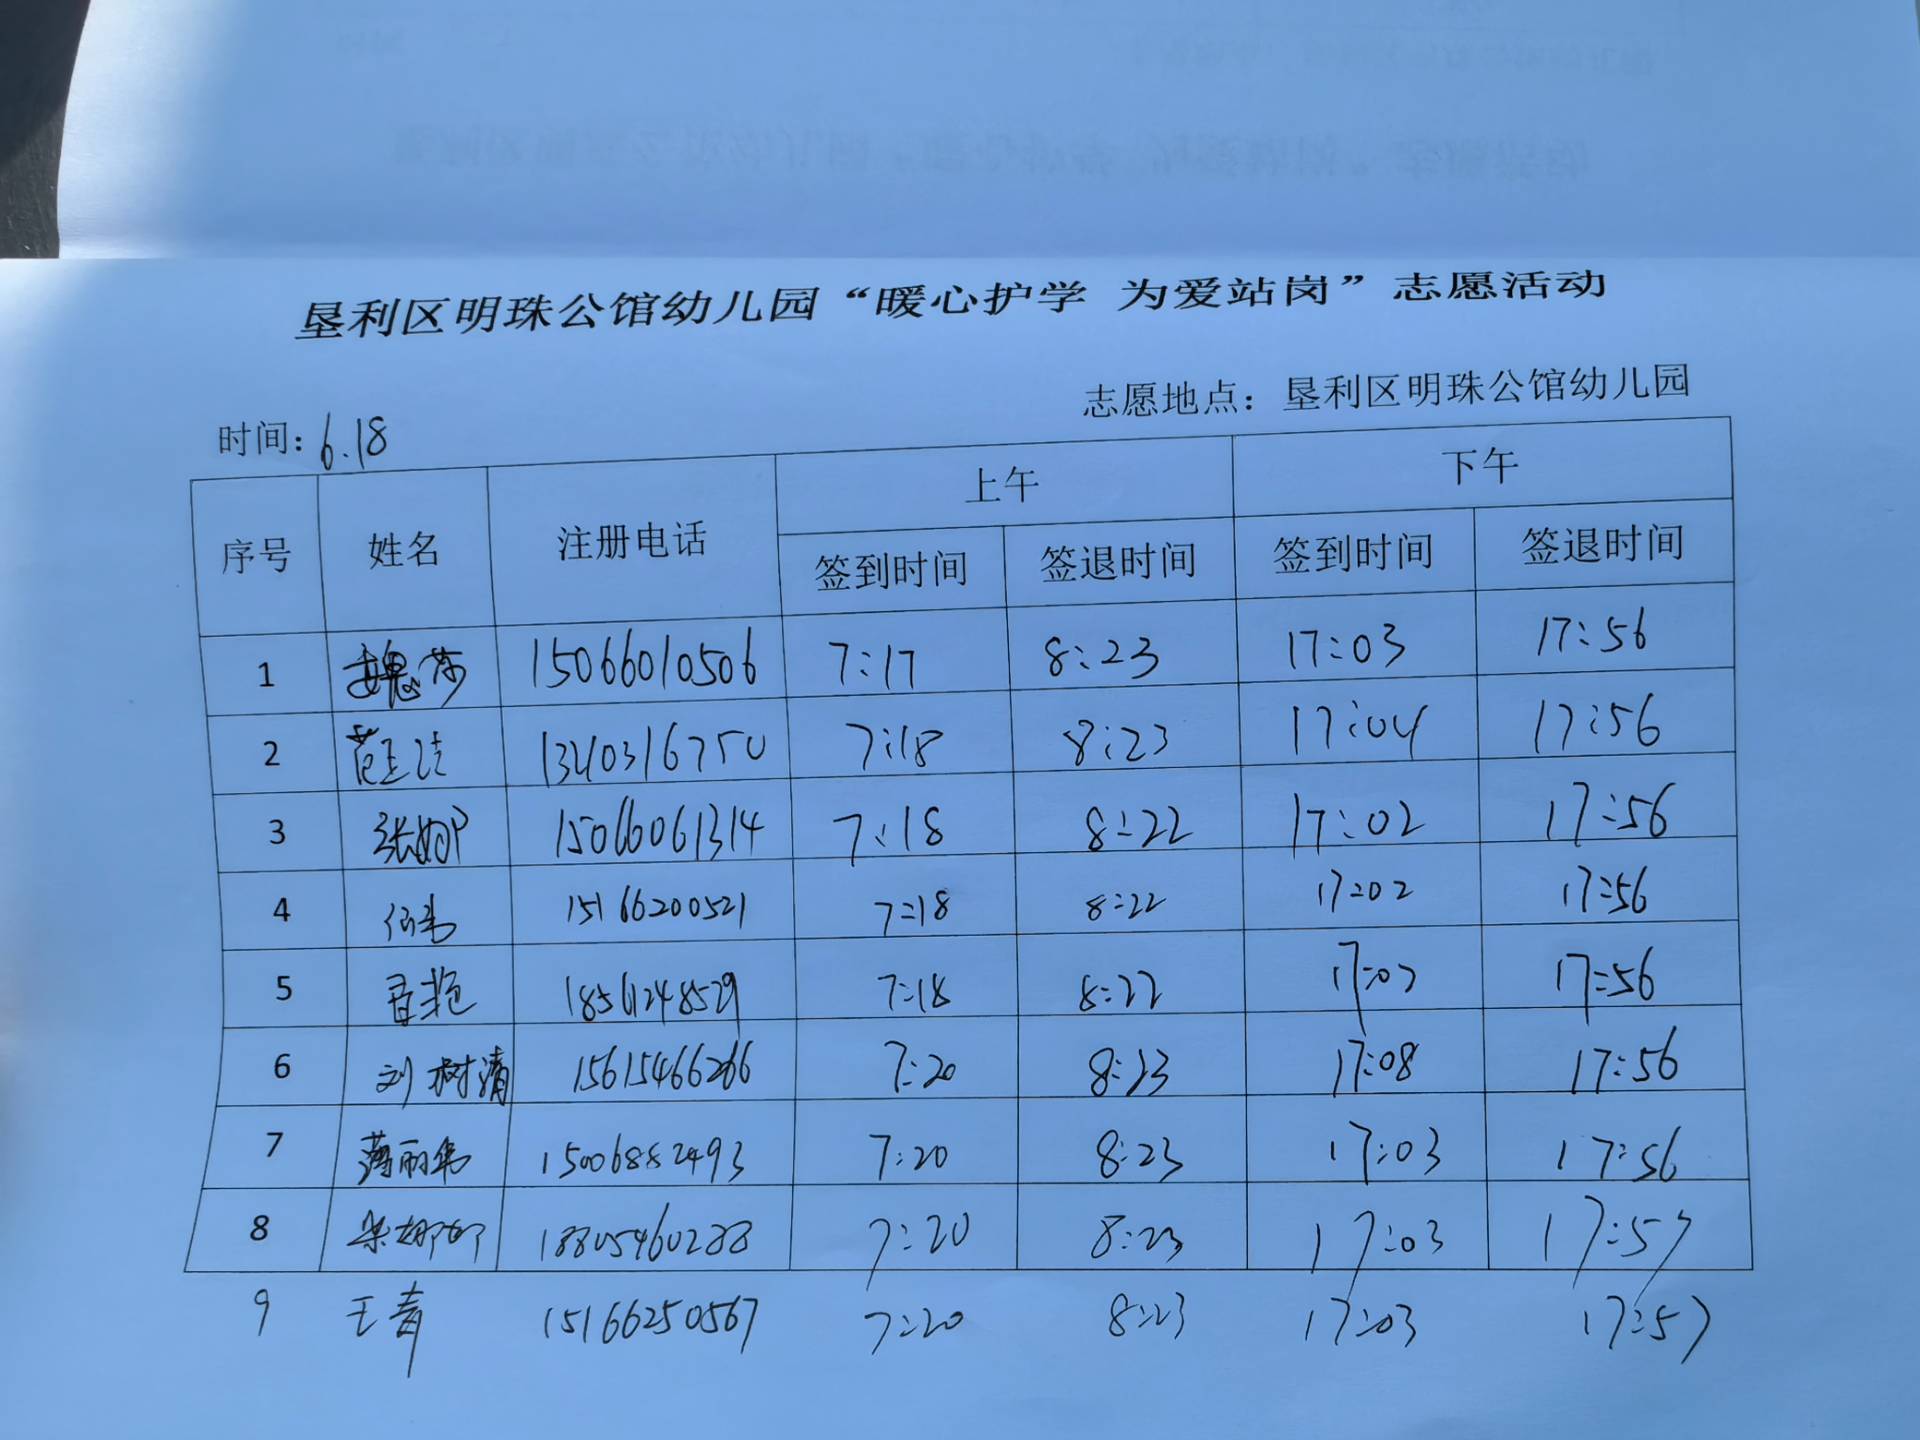 垦利区明珠公馆幼儿园“暖心护学 为爱站岗”志愿活动
时间：6.18 志愿地点：垦利区明珠公馆幼儿园
序号 姓名 注册电话 上午 下午
签到时间 签退时间 签到时间 签退时间
1 15066010506 7:17 8:23 17:03 17:56
2 7:18 8:23 17:04 17:56
3 张娜 15066061314 7:18 8:22 17:02 17:56
4 15166200521 7:18 8:22 17:02 17:56
5 18561248529 7:18 8:22 17:56
6 刘树清 15615466266 7:20 8:23 17:08 17:56
7 薄丽伟 15006882493 7:20 8:23 17:03 17:56
8 梁娜娜 18805460288 7:20 8:23 17:03 17:57
9 王青 15166250567 7:20 8:23 17:03 17:57